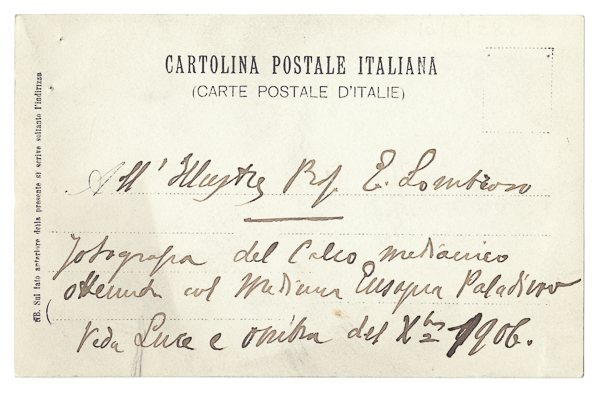 CARTOLINA POSTALE ITALIANA
(CARTE POSTALE D'ITALIE)
NB. Sul lato anteriore della presente si scrive soltanto l'indirizzo
All' Illustre Prof. E. Lombroso
Fotografia del Calco medianico
ottenuto col Medium Eusapia Paladino
Veda Luce e ombra del Xbre 1906.